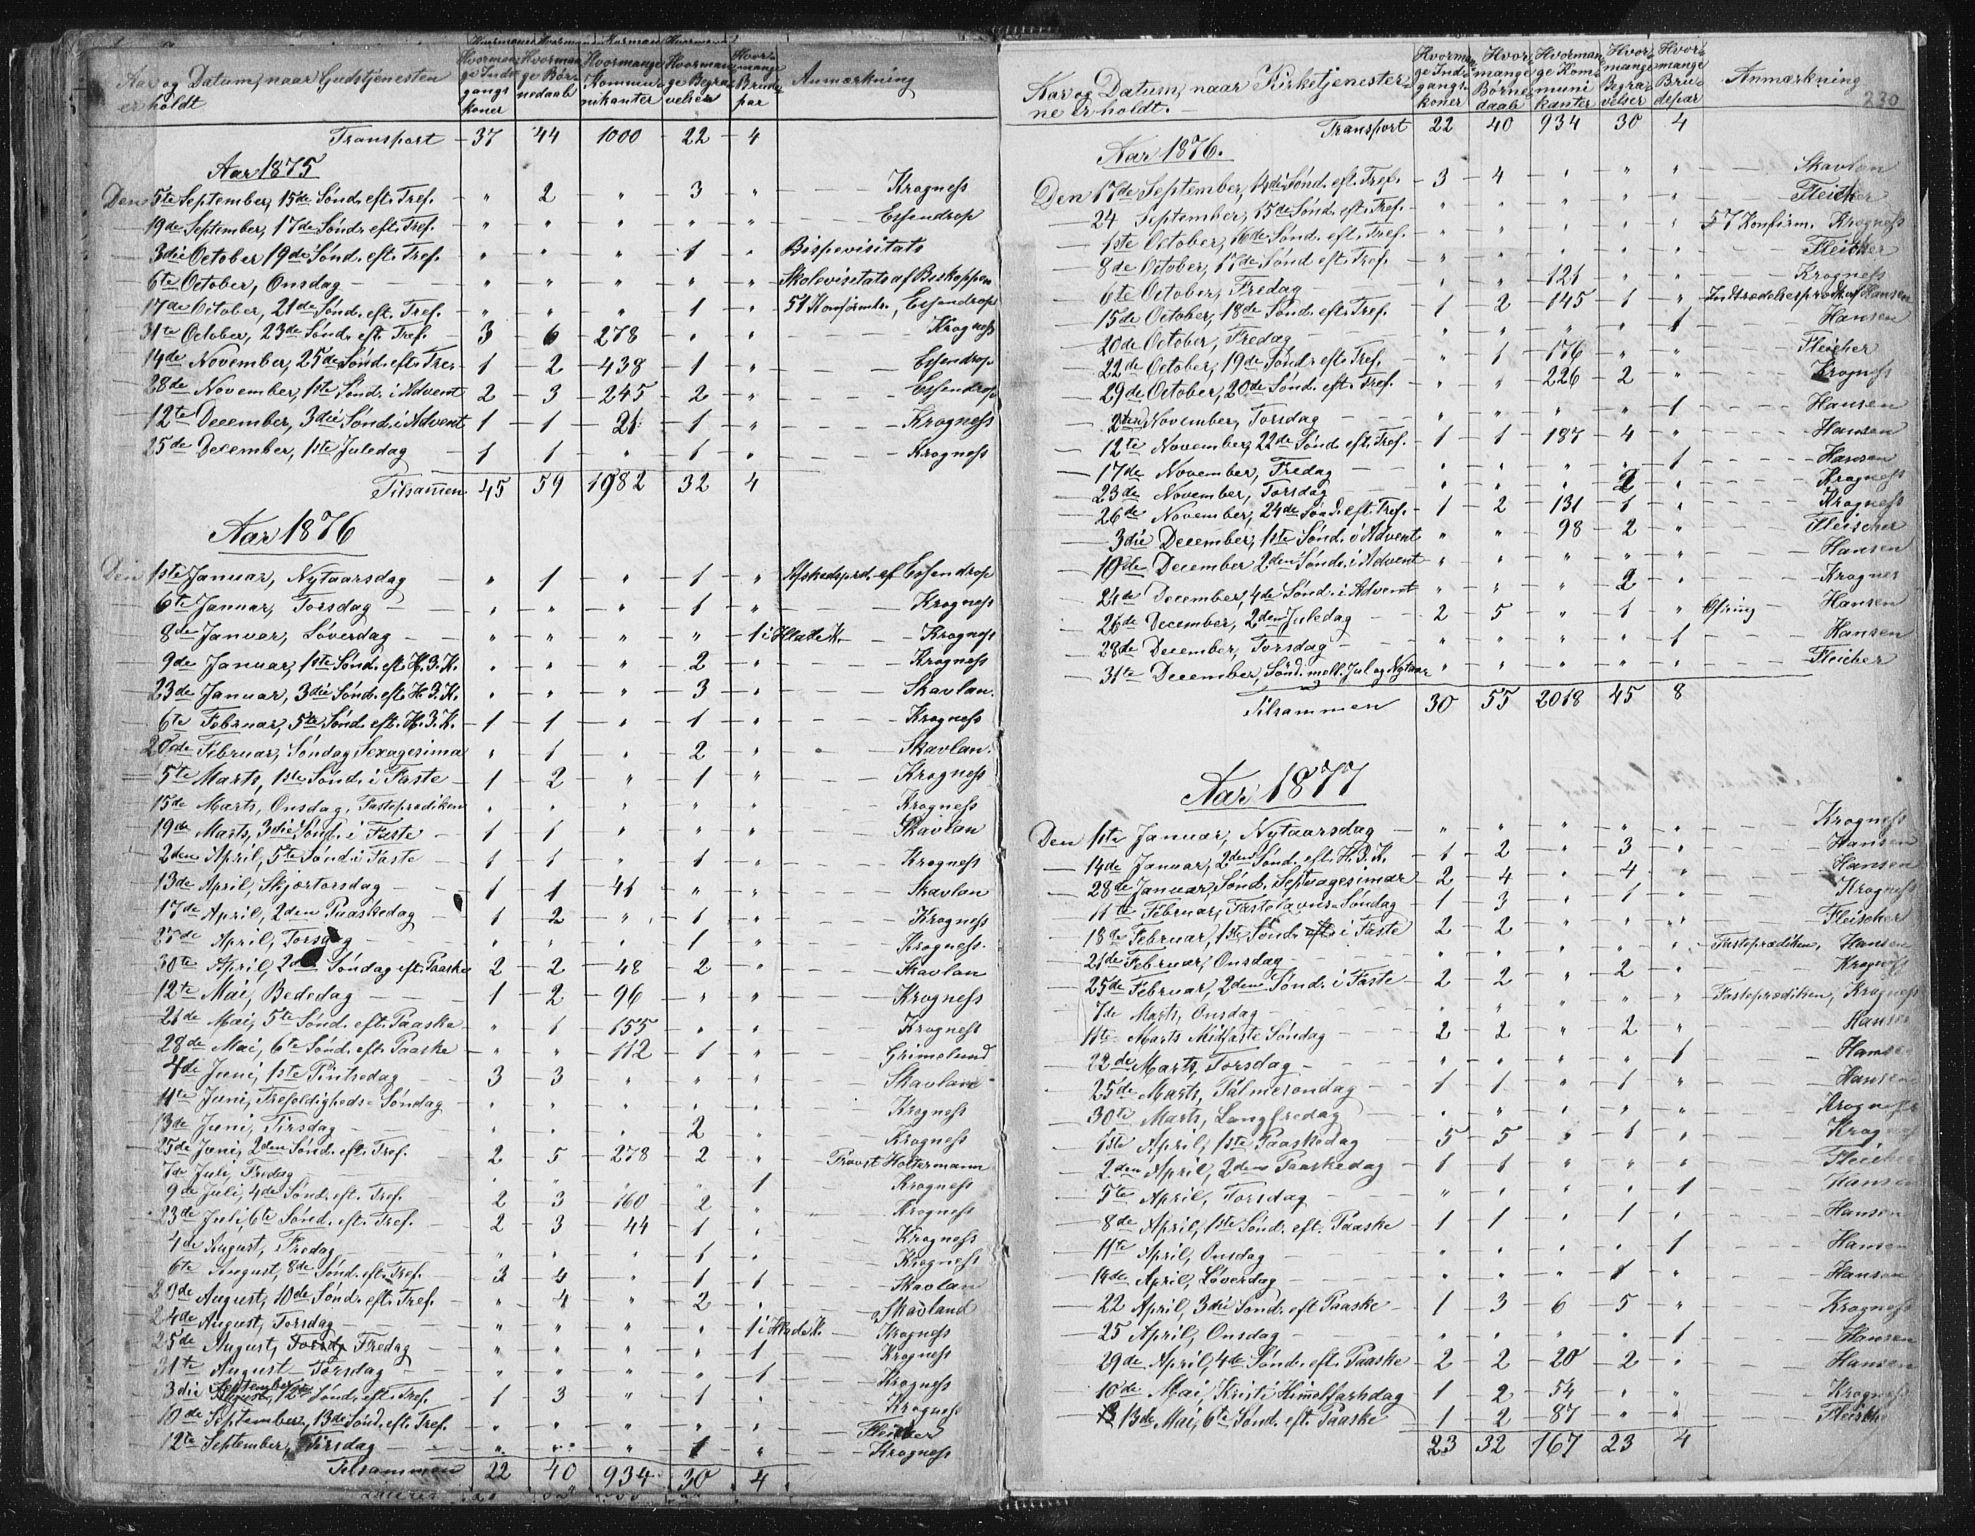 Aar og Datum, naar Gudstjenesten er holdt | Hvormange Indgangskoner | Hvormange Børnedaab | Hvormange Kommunikanter | Hvormange Begravelser | Hvormange Brudepar | Anmærkning
Transport 37 44 1000 22 4
Aar 1875
Den 5te September, 15de Sønd. eft. Tref. " 2 " 3 " Krogness
19de September, 17de Sønd. eft. Tref. " " " " " Essendrop
3die October 19de Sønd. eft. Tref. " " " 1 " Bispevisitats
6te October, Onsdag " " " " " Skolevisitats af Biskoppen
17de October, 21de Sønd. eft. Tref. " " " 1 " 51 Konfirmdr., Essendrop
31te October, 23de Sønd. eft. Tref. 3 6 278 " " Krogness
14de November, 25de Sønd. eft. Tref. 1 2 438 1 " Essendrop
28de November, 1ste Sønd. i Advent 2 3 245 2 " Essendrop
12te December, 3die Sønd. i Advent 1 1 21 1 " Krogness
25de December, 1ste Juledag 1 1 " 1 " Krogness
Tilsammen 45 59 1982 32 4
Aar 1876
Den 1ste Januar, Nytaarsdag " 1 " 1 " Afskedsprd. af Essendrop
6te Januar, Torsdag " " " 1 " Krogness
8de Januar, Løverdag " " " " 1 i Hlade K. Krogness
9de Januar, 1ste Sønd. eft. H. 3. K. " " " 2 " Krogness
23de Januar, 3die Sønd. eft. H. 3. K. " " " 3 " Skavlan.
6te Februar, 5te Sønd. eft. H. 3. K. 1 1 " 1 " Krogness
20de Februar, Søndag Sexagesima " 1 " 2 " Skavlan.
5te Marts, 1ste Sønd. i Faste 1 2 " 1 " Krogness
15de Marts, Onsdag, Fasteprædiken " " " " " Krogness
19de Marts, 3die Sønd. i Faste 1 1 " " " Skavlan
2den April, 5te Sønd. i Faste 1 1 " 1 " Krogness
13de April, Skjærtorsdag 1 1 41 " " Skavlan
17de April, 2den Paaskedag 1 2 " 1 " Krogness
27de April, Torsdag " " " 1 " Krogness.
30te April, 2den Søndag eft. Paaske 2 2 48 2 " Skavlan
12te Mai, Bededag 1 2 96 " " Krogness
21de Mai, 5te Sønd. eft. Paaske " 1 155 " " Krogness
28de Mai, 6te Sønd. eft. Paaske " " 112 1 " Grimelund
4de Juni, 1ste Pintsedag 3 3 " " " Skavlan
11te Juni, Trefoldigheds-Søndag " " " " " Krogness
13de Juni, Tirsdag " " " 2 " Krogness
25de Juni, 2den Sønd. eft. Tref. 2 5 278 2 " Provst Holtermann
7de Juli, Fredag " " " " 1 Krogness
9de Juli, 4de Sønd. eft. Tref. 2 3 160 2 " Krogness
23de Juli 6te Sønd. eft. Tref. 2 3 44 1 " Krogness
4de August, Fredag " " " 1 " Krogness
6te August, 8de Sønd. eft. Tref. 3 4 " 1 1 Skavlan
20de August, 10de Sønd. eft. Tref. " 4 " 2 " Skavland
24de August, Torsdag " " " " 1 i Hlade K. Krogness
25de August, Torsd. Fredag " " " " 1 Krogness
31te August Torsdag " " " " 1 Krogness
3die September August, 12te Sønd. eft. Tref. 1 3 " 1 " Krogness
10de September, 13de Sønd. eft. Tref. " " " " " Fleischer
12te September, Tirsdag " " " 1 " Krogness
Tilsammen 22 40 934 30 4
230
Aar og Datum, naar Kirketjenesterne er holdt. | Hvormange Indgangskoner | Hvormange Børnedaab | Hvormange Kommunikanter | Hvormange Begravelser | Hvormange Brudepar | Anmærkning
Transport 22 40 934 30 4
Aar 1876.
Den 17de September, 14de Sønd. eft. Tref. 3 4 " " " Skavlan
24 September, 15de Sønd. eft. Tref. " " " " " Fleicher
1ste October, 16de Sønd. eft. Tref. " " " " " 57 Konfirm. Krogness
8de October, 17de Sønd eft. Tref. " " " " " Fleicher
6te October, Fredag " " 121 " " Krogness
15de October, 18de Sønd. eft. Tref. 1 2 145 1 " Indtrædelsesprd. af Hansen
20de October, Fredag " " " " 1 Hansen
22de October, 19de Sønd. eft. Tref. " 1 176 " " Fleicher
29de October, 20de Sønd. eft. Tref. " " 226 2 " Krogness
2den November, Torsdag " " " " 1 Hansen
12te November, 22de Sønd. eft. Tref. 1 1 187 4 " Hansen
17de November, Fredag " " " " 1 Hansen
23de November, Torsdag " " " 2 " Krogness
26de November, 24de Sønd. eft. Tref. 1 2 131 1 " Krogness
3die December, 1ste Sønd. i Advent " " 98 2 " Fleischer
10de December 2den Sønd. i Advent " " " " " Hansen
24de December, 4de Sønd. i Advent " " " 2 " Krognes
26de December, 2den Juledag 2 5 " 1 " Ofring Hansen
28de December, Torsdag " " " " 1 Hansen
31te December, Sønd. mell. Jul og Nytaar " " " " " Fleicher
Tilsammen 30 55 2018 45 8
Aar 1877
Den 1ste Januar, Nytaarsdag " " " " " Krogness
14de Januar, 2den Sønd. eft. H. 3. K. 1 2 " 3 " Hansen
28de Januar, Sønd. Septuagesimæ 2 4 " 4 " Hansen
11te Februar, Fastelavns-Søndag 1 3 " 1 " Krogness
18de Februar, 1ste Sønd. eft. i Faste 2 2 " " " Fleischer
21de Februar, Onsdag " " " " " Fasteprædiken, Hansen
25de Februar, 2den Sønd. i Faste 2 2 " 2 " Krogness
7de Marts, Onsdag " " " " " Fasteprædiken, Krogness
11te Marts Midfaste Søndag 2 2 " 2 " Hansen
22de Marts, Torsdag " " " " 1 Hansen
25de Marts, Palmesøndag 1 1 " 1 " Hansen
30te Marts, Langfredag " " " " " Krogness
1ste April, 1ste Paaskedag 5 5 " 1 " Krogness
2den April, 2den Paaskedag 1 1 " " " Fleicher
5te April, Torsdag " " " " 1 Hansen
8de April, 1ste Sønd. eft. Paaske 1 1 " 1 " Hansen
11te April, Onsdag " " " " 1 Hansen
14de April, Løverdag " " " 1 " Hansen
22 April, 3die Sønd. eft Paaske 1 3 6 5 " Krogness
25 April, Onsdag " " " " 1 Hansen
29de April, 4de Sønd. eft. Paaske 2 2 20 2 " Hansen
10de Mai, Kristi Himelfartsdag 1 2 54 " " Krogness
13de Mai, 6te Sønd. eft. Paaske 1 2 87 " " Fleische
23 32 167 23 4